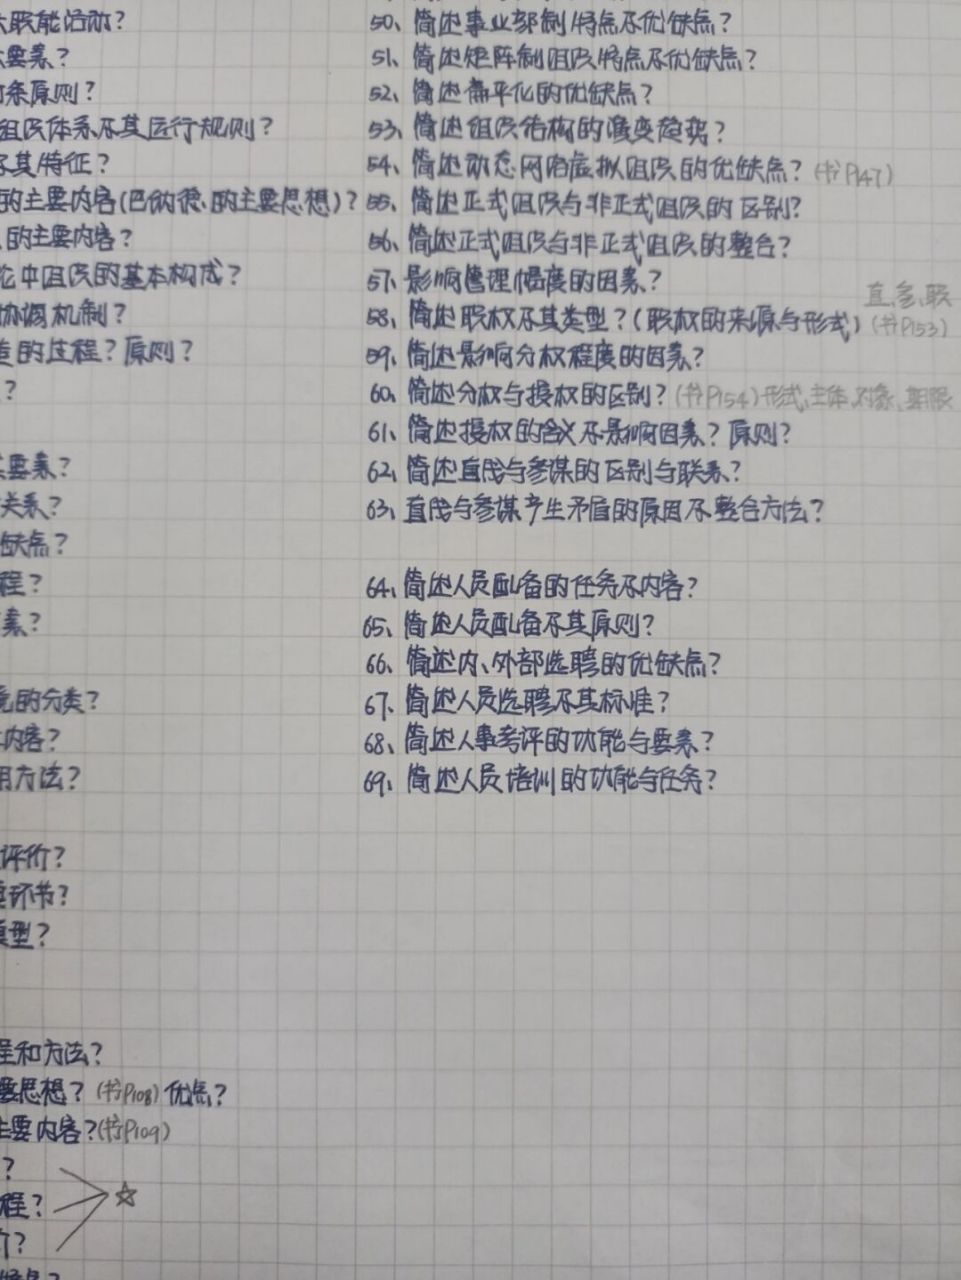 大职能活动？
要素？
条原则？
组织体系及其运行规则？
及其特征？
的主要内容(巴纳德的主要思想)？
的主要内容？
论中组织的基本构成？
协调机制？
造的过程？原则？
？
要素？
关系？
缺点？
程？
素？
境的分类？
内容？
用方法？
评价？
要环节？
模型？
程和方法？
要思想？(书P108) 优点？
主要内容？(书P109)
？
程？ ☆
？
50、简述事业部制特点及优缺点？
51、简述矩阵制组织特点及优缺点？
52、简述扁平化的优缺点？
53、简述组织结构的演变趋势？
54、简述动态网络虚拟组织的优缺点？(书P147)
55、简述正式组织与非正式组织的区别？
56、简述正式组织与非正式组织的整合？
57、影响管理幅度的因素？
直、参、职
58、简述职权及其类型？(职权的来源与形式)(书P153)
59、简述影响分权程度的因素？
60、简述分权与授权的区别？(书P154)形式、主体、对象、期限
61、简述授权的含义及影响因素？原则？
62、简述直线与参谋的区别与联系？
63、直线与参谋产生矛盾的原因及整合方法？
64、简述人员配备的任务及内容？
65、简述人员配备及其原则？
66、简述内、外部选聘的优缺点？
67、简述人员选聘及其标准？
68、简述人事考评的功能与要素？
69、简述人员培训的功能与任务？